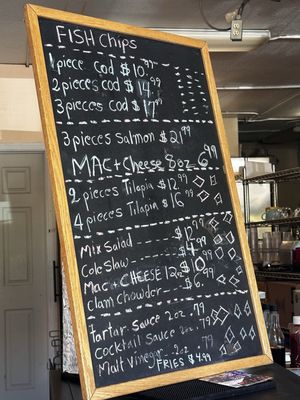 FISH Chips
1 piece Cod $10.99
2 pieces cod $14.99
3 pieces Cod $17.99
3 pieces Salmon $21.99
MAC + Cheese 8oz 6.99
2 pieces Tilapia $12.99
4 pieces Tilapia $16.99
Mix Salad $12.99
Cole Slaw $4.99
Mac + CHEESE 12oz
Clam chowder $6.99
Tartar Sauce 2oz .79
Cocktail Sauce 2oz .79
Malt Vinegar 2oz .79
FRIES $4.99